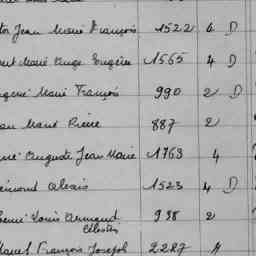 tor Jean Marie François 1522 6 D
ert Marie Ange Eugène 1565 4 D
ugène Marie François 990 2 D
ean Marie Pierre 887 2
ené Auguste Jean Marie 1763 4
eimond Alexis 1523 4 D
Remi Louis Armand 938 2
Célestin
Marcel François Joseph 2287 4